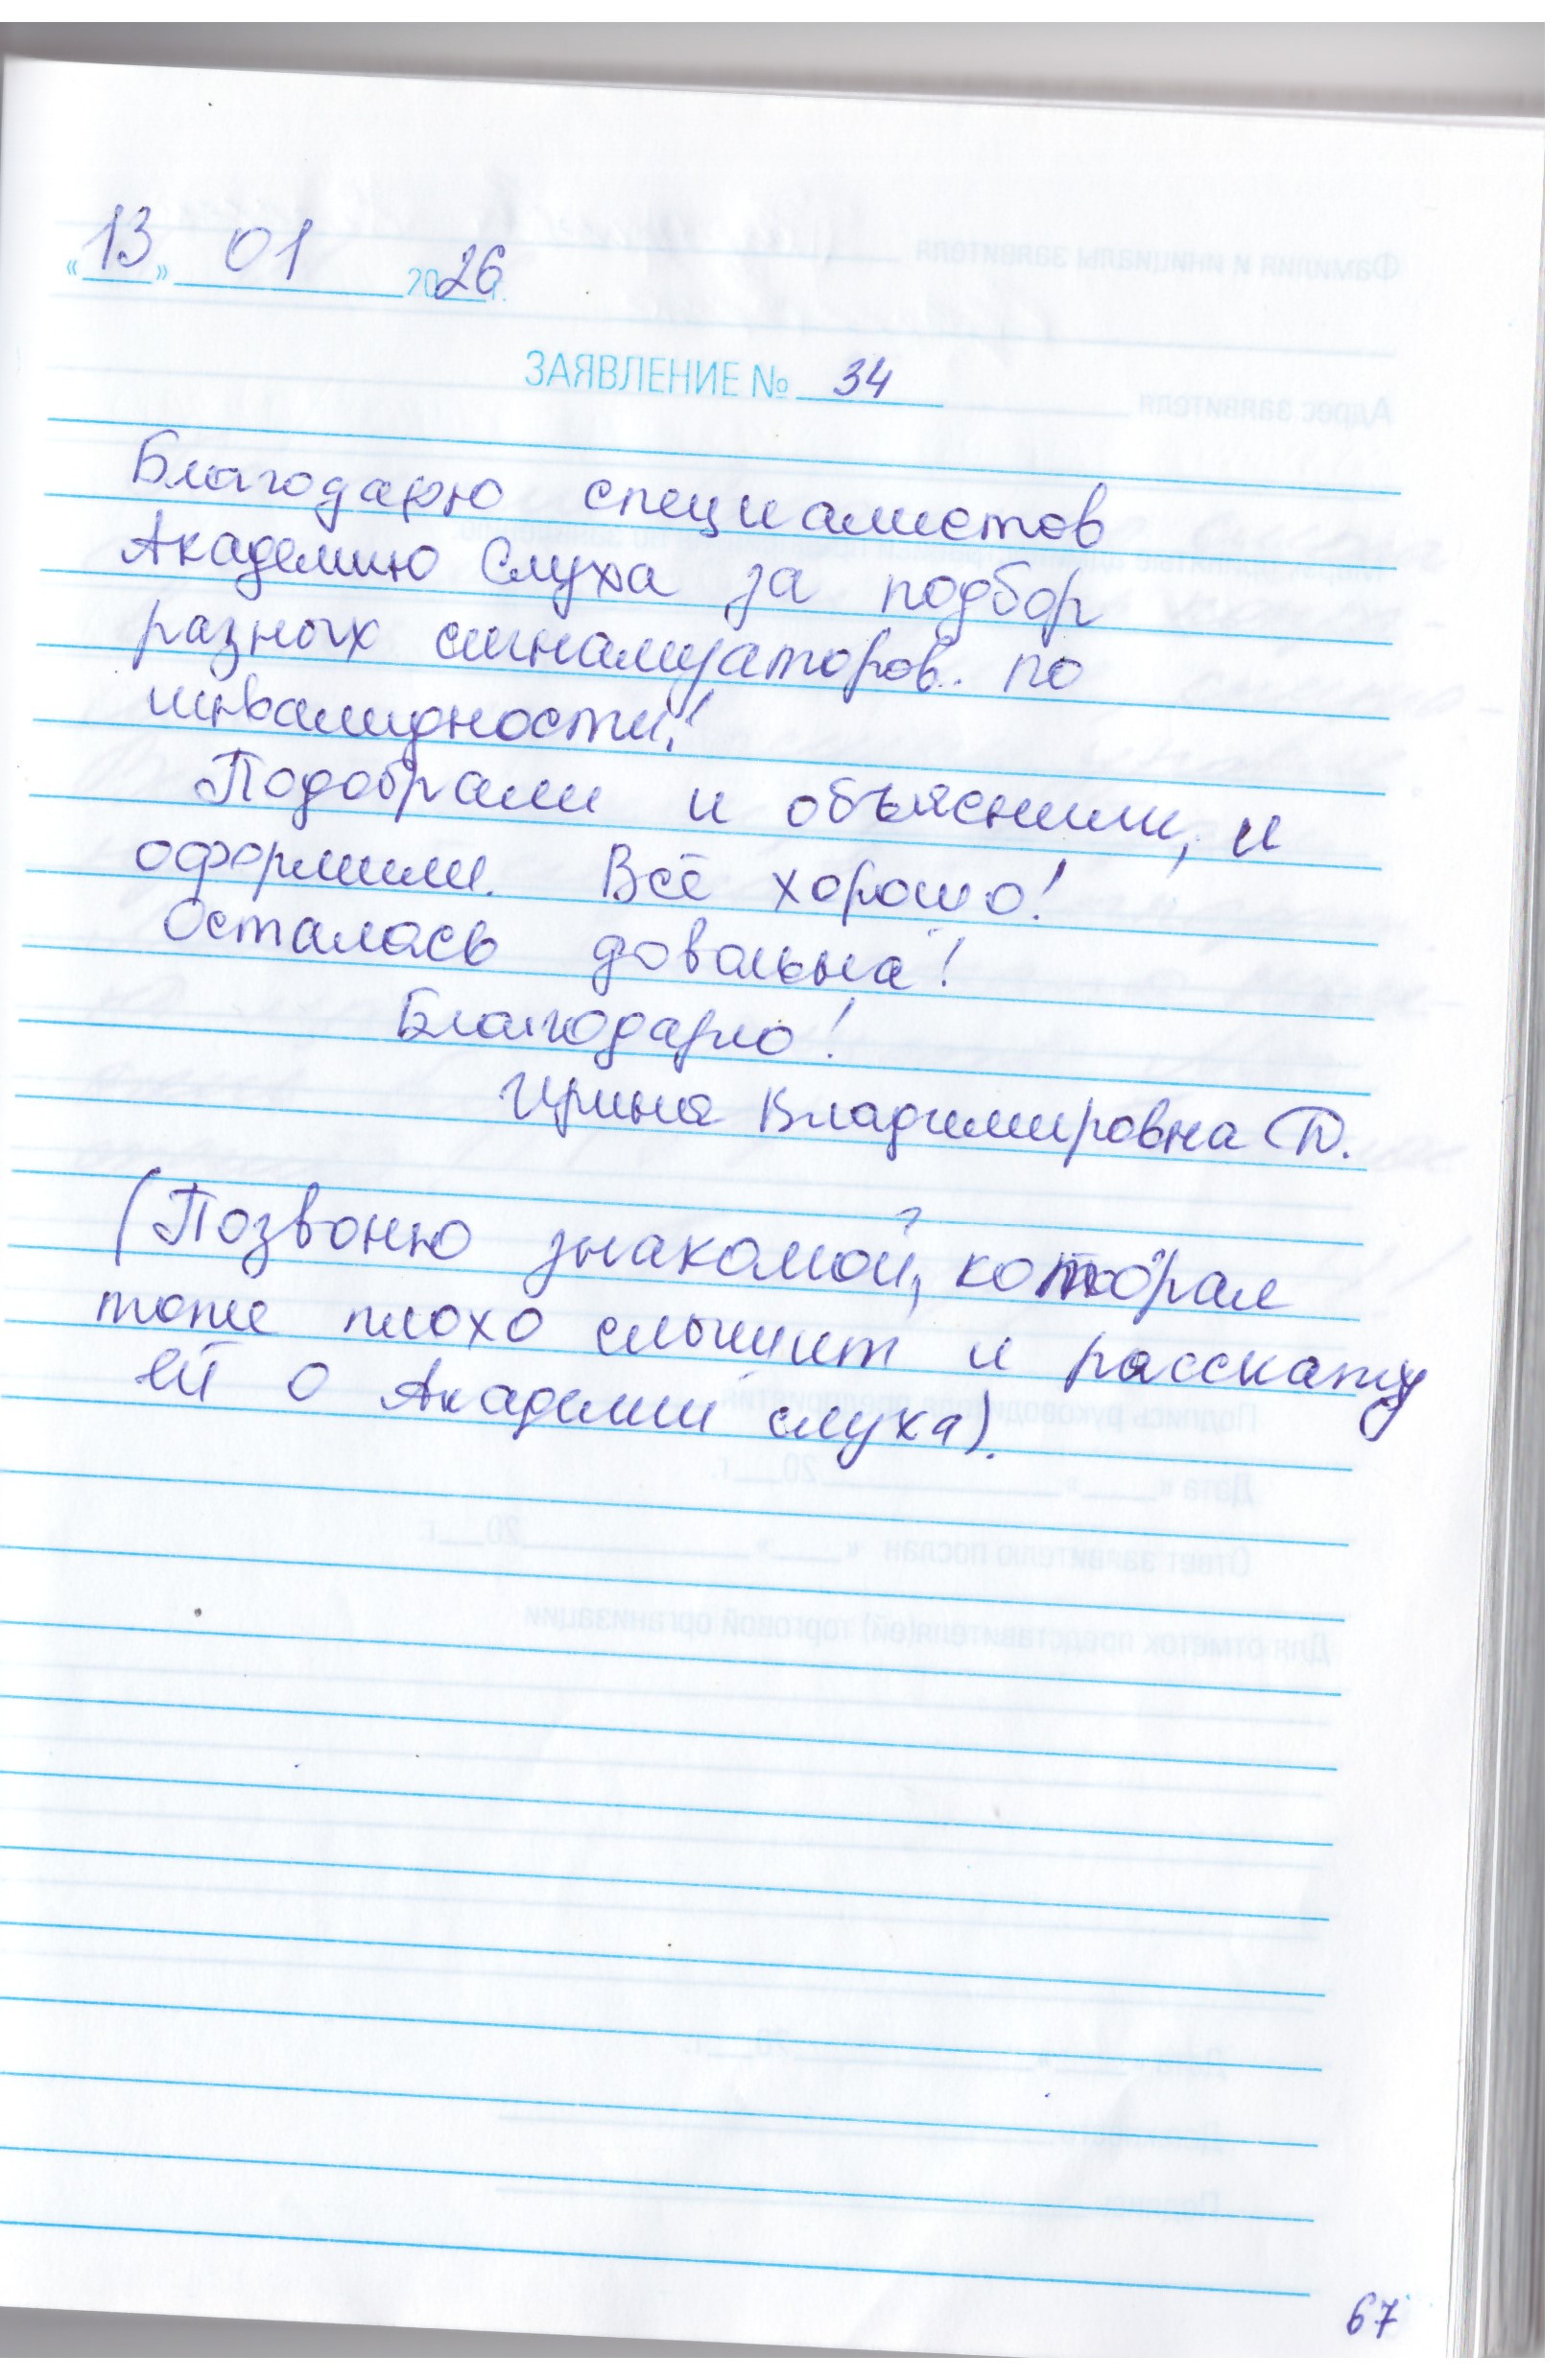 «13» 01 2026 г.
ЗАЯВЛЕНИЕ № 34
Благодарю специалистов
Академию Слуха за подбор
разных сигнализаторов. по
инвалидности!
Подобрали и объяснили, и
оформили. Всё хорошо!
Осталась довольна!
Благодарю!
Ирина Владимировна П.
(Позвоню знакомой, которая
тоже плохо слышит и расскажу
ей о Академии слуха).
67